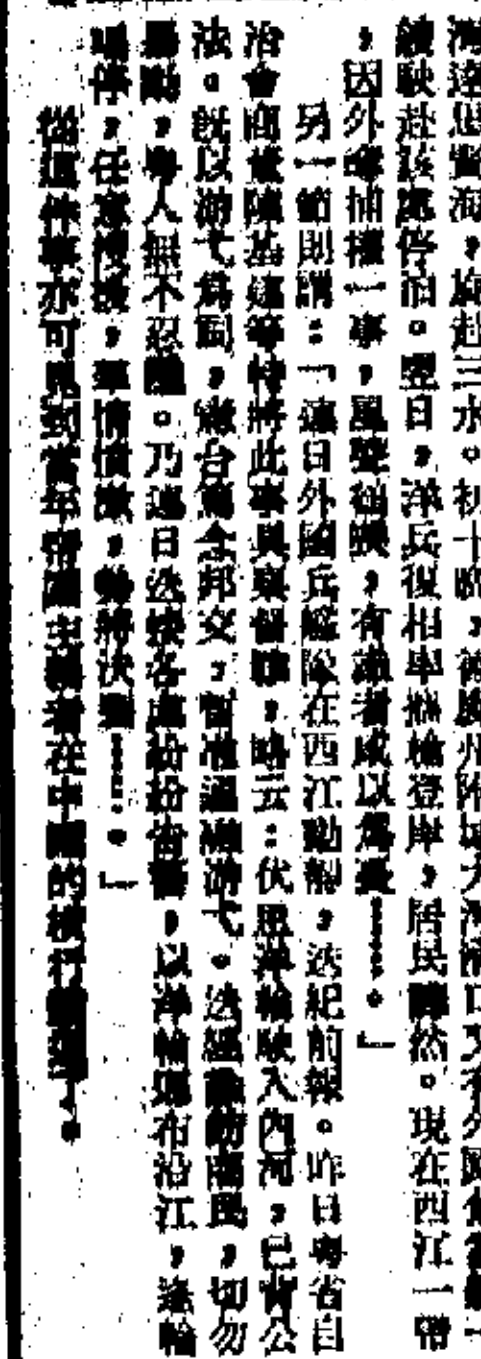 海，旋赴三水。初十晚，
續駛赴該處停泊。翌日，洋兵復相率携槍登岸，居民譁然。現在西江一帶
，因外奪捕權一事，風聲所映，有識者咸以為憂……。」
另一節則謂：「連日外國兵艦隊在西江動靜，迭紀前報。昨日粵省自
治會商董陳基建等特將此事具稟督轅，略云：伏思洋輪駛入內河，已背公
法。既以游弋為詞，憲台為全邦交，暫准通融游弋。迭經勸諭商民，切勿
暴動，粵人無不忍隱。乃連日迭接各處紛紛告警，以洋輪遍布沿江，逢輪
喝停，任意搜擾，羣情憤激，勢將決裂……。」
從這件事亦可見到當年帝國主義者在中國的橫行霸道了。